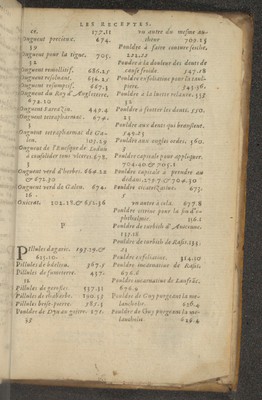 LES RECEPTES.
ce. 177.11
Onguent precieux. 674.
39
Onguent pour la tigne. 705.
32
Onguent remollitif. 686.27
Onguent resolutif. 656.21
Onguent resomptif. 667.3
Onguent du Roy d'Angleterre,
672.10
Onguent Sarrazin. 442.4
Onguent tetrapharmac. 674.
Onguent tetrapharmac de Ga-
lien. 107.29
Onguent de l'Euesque de Lodun
à consolider tous vlceres. 678.
Onguent verd d'herbes. 680.22
& 675.30
Onguent verd de Galen. 674.
16
Oxicrat. 102.18. & 651.36
P
Pillules d'agaric. 597.29. &
613.10.
Pillules de bdelium. 367.5
Pillules de fumeterre. 457.
12
Pillules de perosse. 537.31
Pillules de rhabarbe. 190.35
Pillules brise-pierre. 585.3
Pouldre de Dyn au goitre. 271.
35
vn autre du mesme au-
theur 700.25
Pouldre à faire conioer soche.
222.22
Pouldre à la douleur des dents de
cause froide. 547.18
Pouldre exfoliative pour la taul-
piere. 345.36.
Pouldre à la luette relaxée. 558.
32
Pouldre à frotter les dents. 550.
23
Pouldre aux dents qui branslent.
549.23
Pouldre aux ongles ordes. 360.
5
Pouldre capitale pour appliquer.
704.40. & 705.1
Pouldre capitale à prendre au
dedans. 275.7. & 704.30
Pouldre cicatrizatiue. 673.
5
vn autre à cela. 697.8
Pouldre citrine pour la
phthalmie. 516.1
Pouldre de turbith d'Auicenne.
235.16
Pouldre de turbith de Rasis. 235.
21
Pouldre exfoliatiue. 314.10
Pouldre incarnatiue de Rasis.
676.6
Pouldre incarnatiue de Lanfrãc.
676.9
Pouldre de Guy purgeant la me-
lancholie. 636.4
Pouldre de Guy purgeant la me-